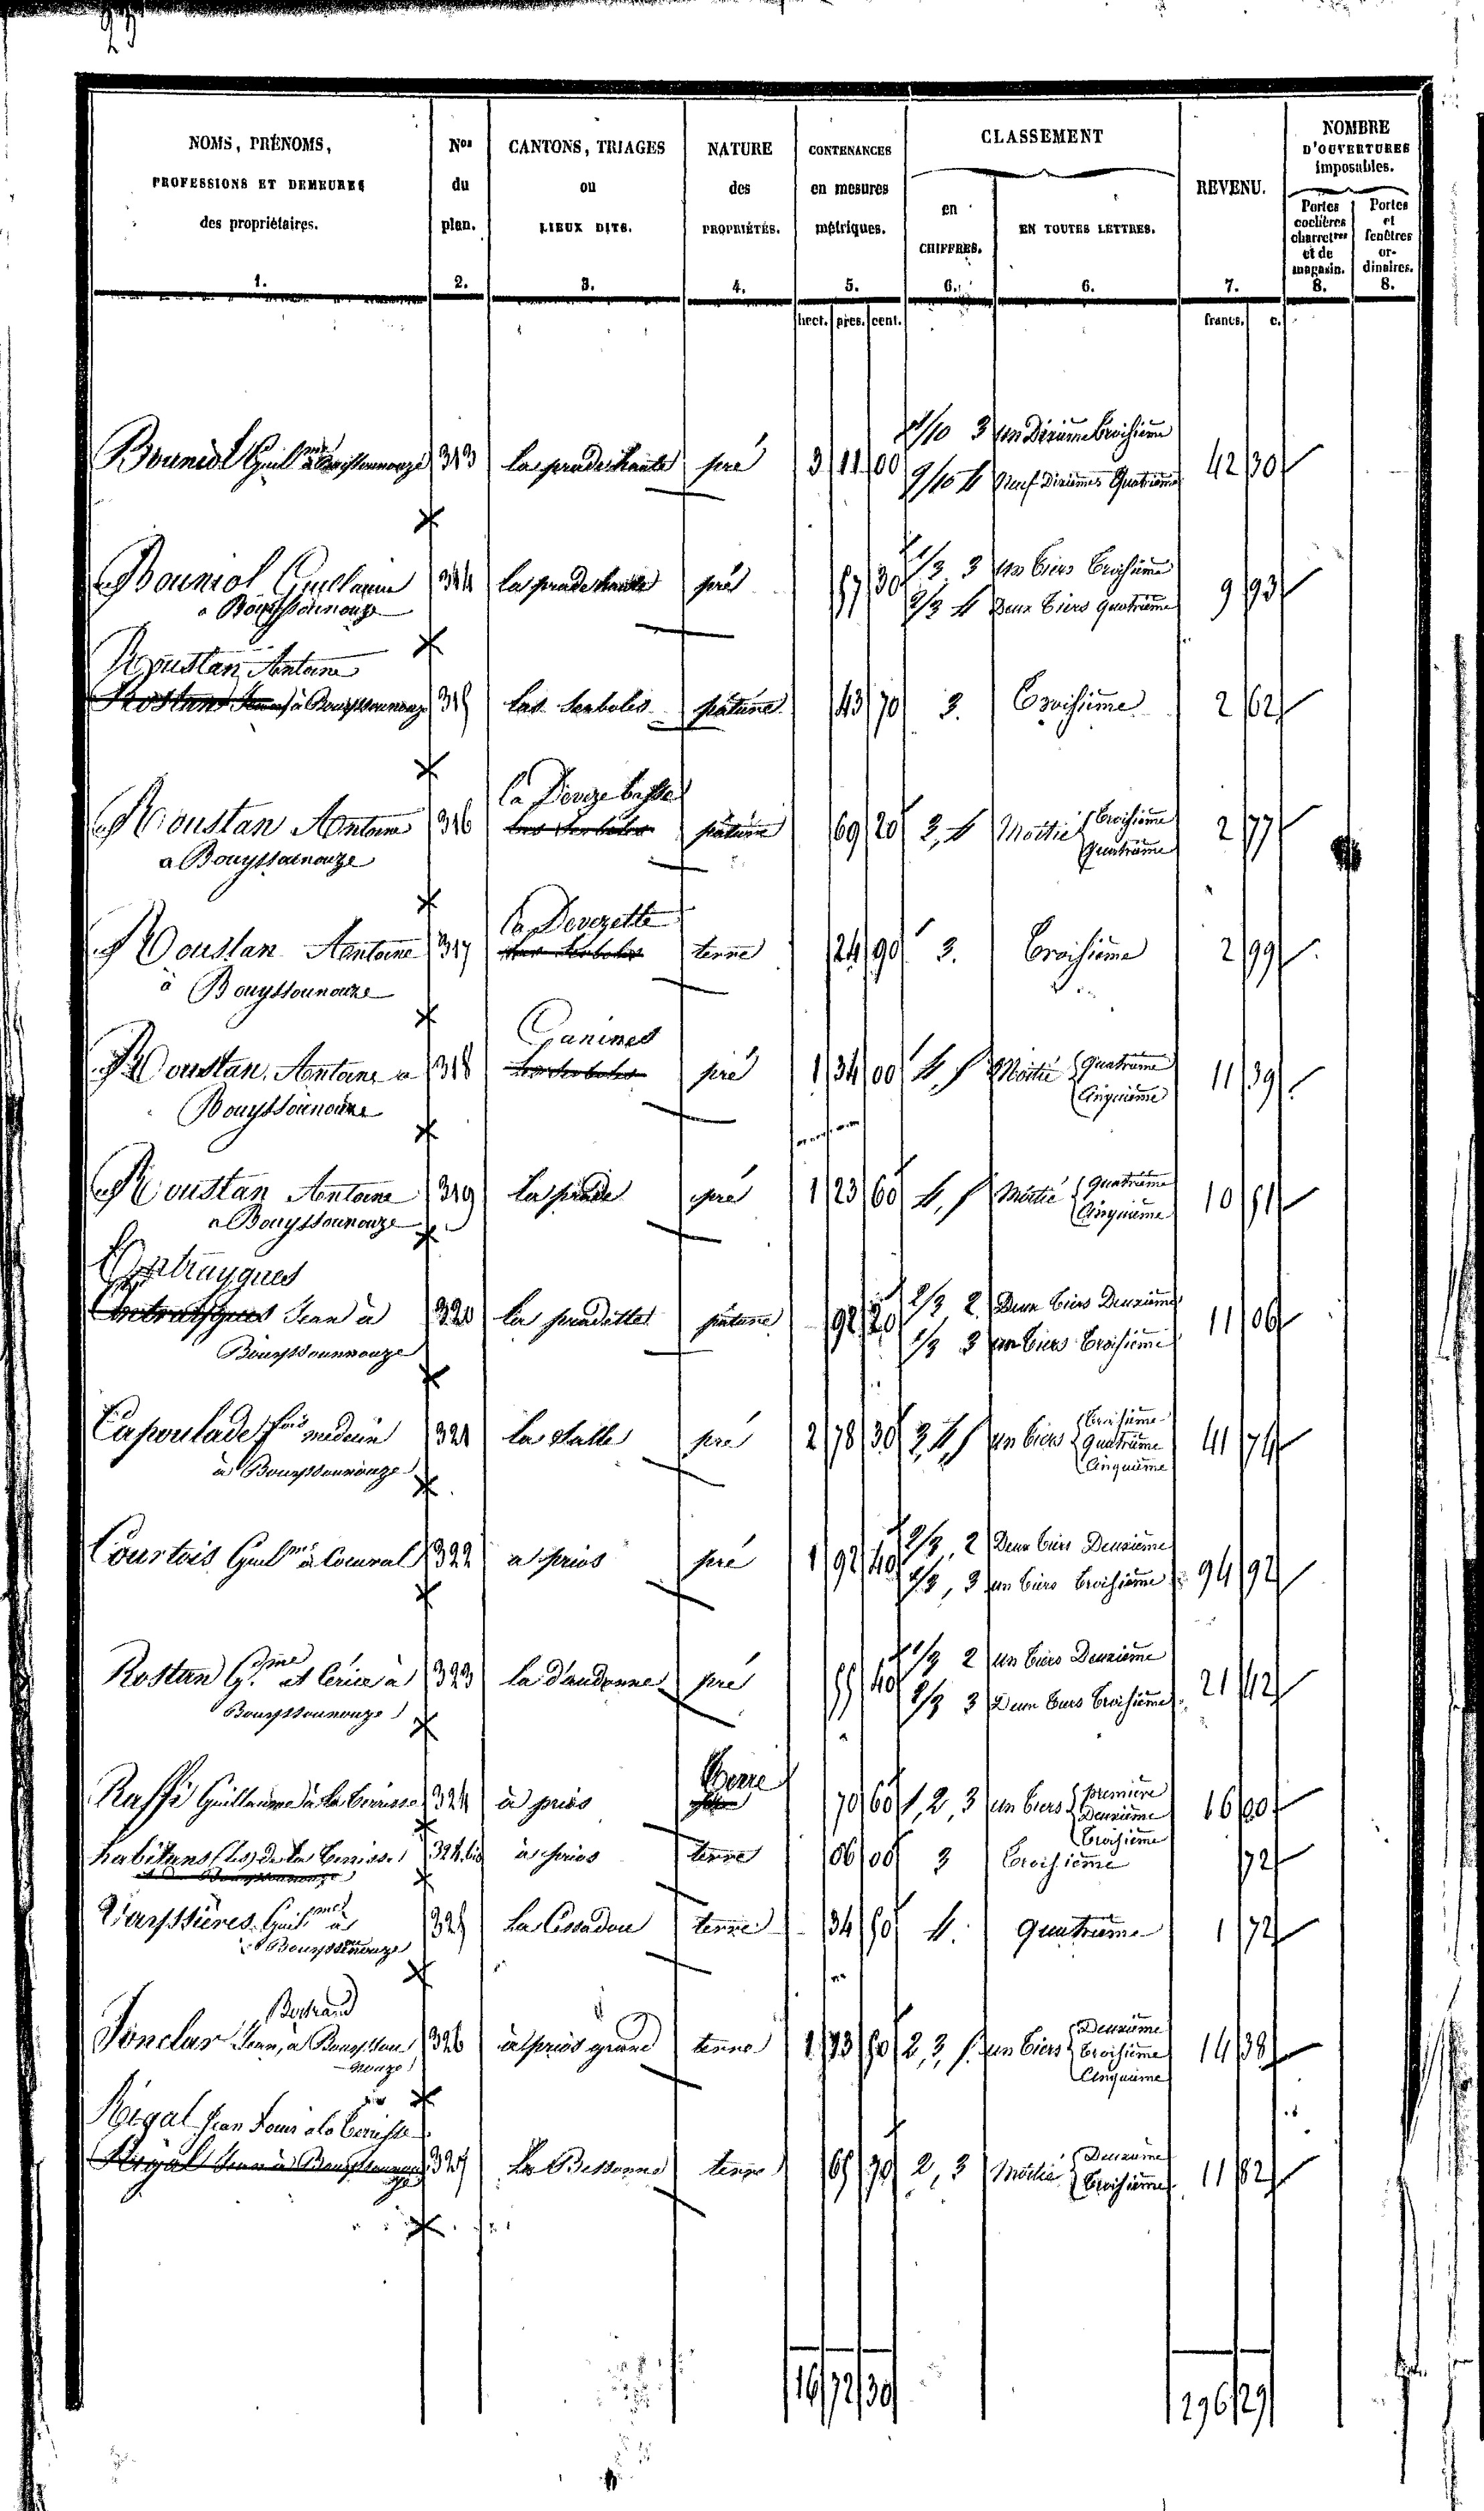 23
NOMS, PRÉNOMS, PROFESSIONS ET DEMEURES des propriétaires. 1.
Nos du plan. 2.
CANTONS, TRIAGES ou LIEUX DITS. 3.
NATURE des PROPRIÉTÉS. 4.
CONTENANCES en mesures métriques. 5.
CLASSEMENT
en CHIFFRES. 6.
EN TOUTES LETTRES. 6.
REVENU. 7.
NOMBRE D'OUVERTURES imposables.
Portes cochères charretres et de magasin. 8.
Portes et fenêtres or-dinaires. 8.
hect. pres. cent. francs. c.
Bouniol Guilme à Bouyssounouze 313 La prade haute pré 3 11 00 1/10 3 un Dixième Troisième 42 30
9/10 4 Neuf Dixièmes Quatrième
Bouniol Guillaume 314 La prade haute pré 57 30 1/3 3 un Tiers Troisième 9 93
à Bouyssounouze 2/3 4 Deux Tiers Quatrième
Roustan Antoine
à Bouyssounouze 315 Las pâture 43 70 3. Troisième 2 62
La Deveze basse
Roustan Antoine 316 pâture 69 20 3, 4 Moitié Troisième Quatrième 2 77
a Bouyssounouze
La Devezette
Roustan Antoine 317 terre 24 90 3. Troisième 2 99
à Bouyssounouze
Ganines
Roustan Antoine a 318 pré 1 34 00 4, 5 Moitié Quatrième Cinquième 11 39
Bouyssounouze
Roustan Antoine 319 La prade pré 1 23 60 4, 5 Moitié Quatrième Cinquième 10 51
a Bouyssounouze
Entraygues
Jean à 320 La pradette pâture 92 20 2/3 2 Deux Tiers Deuxième 11 06
Bouyssounouze 1/3 3 un Tiers Troisième
Capoulade fois médecin 321 La Salle pré 2 78 30 3, 4, 5 un Tiers Troisième Quatrième Cinquième 41 74
à Bouyssounouze
Courtois Guilme à Comval 322 a prios pré 1 92 40 2/3, 2 Deux Tiers Deuxième 94 92
1/3, 3 un Tiers Troisième
Rostan 323 pré 55 40 1/3 2 un Tiers Deuxième 21 42
Bouyssounouze 2/3 3 Deux Tiers Troisième
Terre
Raffi Guillaume à la Terrisse 324 à prios 70 60 1, 2, 3 un Tiers première Deuxième Troisième 16 00
habitans (les) de la Terrisse 324 bis à prios terre 06 00 3 Troisième 72
Vayssières Guilme à 325 terre 34 50 4. Quatrième 1 72
Bouyssounouze
Bertrand
Jonclar Jean, à Bouyssou 326 à prios grand terre 1 73 50 2, 3, 5. un Tiers Deuxième Troisième Cinquième 14 38
nouze
Rigal Jean Louis à la Terrisse
Rigal Jean à Bouyssounouze 327 La Bessonne terre 65 70 2, 3 Moitié Deuxième Troisième 11 82
16 72 30 296 29